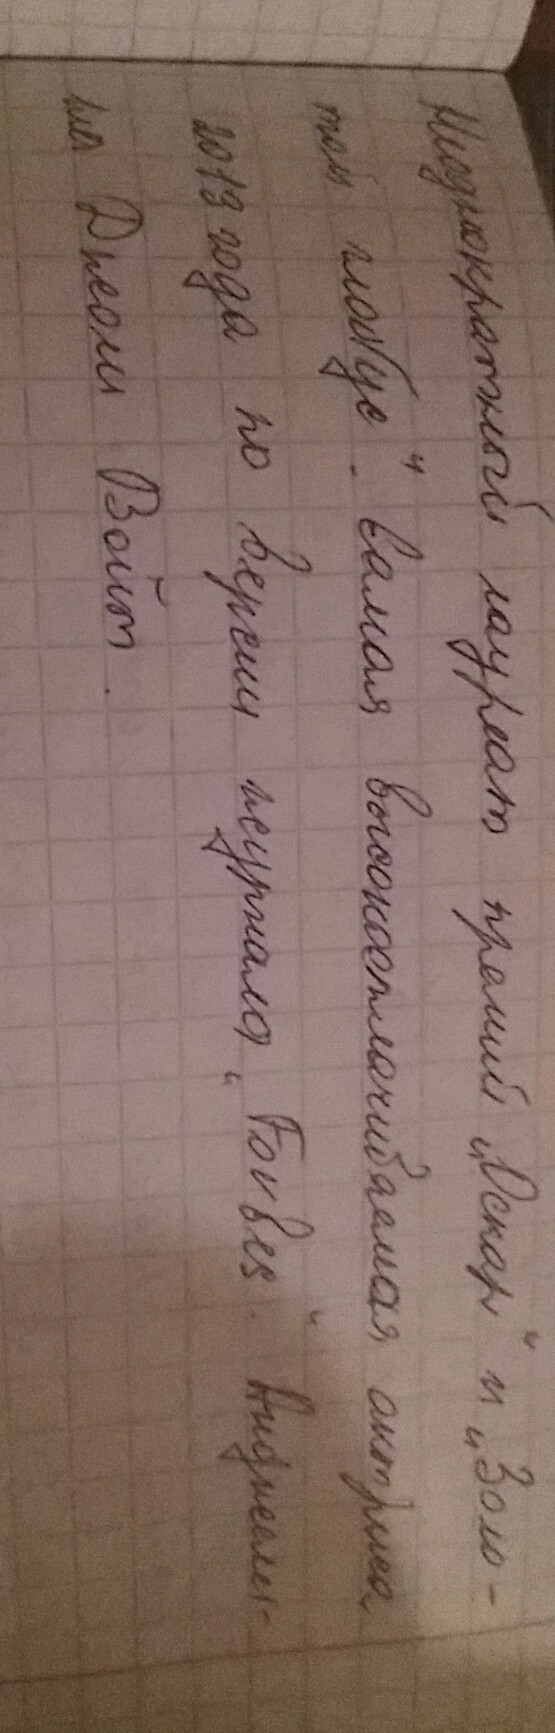 Неоднократный лауреат премий „Оскар" и „Золо-
той глобус". Самая высокооплачиваемая актриса
2013 года по версии журнала „Forbes". Анджели-
на Джоли Войт.